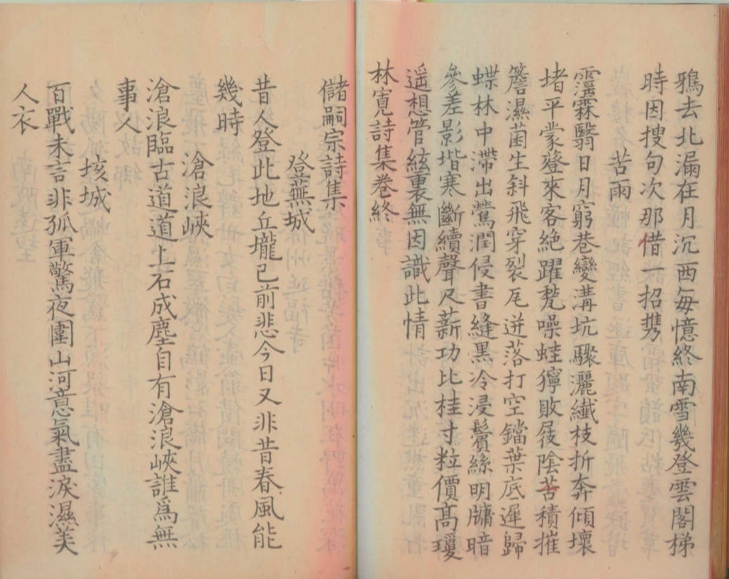 鴉去北漏在月沉西每憶終南雪幾登雲閣梯
時因搜句次那借一招攜
苦雨
霪霖翳日月窮巷變溝坑驟灑纖枝折奔傾壞
堵平蒙蒙來客絕躍甃噪蛙獰敗屐陰苔積摧
簷濕菌生斜飛穿裂瓦迸落打空鐺葉底遲歸
蝶林中滯出鶯潤侵書縫黑冷浸鬢絲明牖暗
參差影堦寒斷續聲尺薪功比桂寸粒價高瓊
遥想管絃裏無因識此情
林寛詩集卷終
儲嗣宗詩集
登蕪城
昔人登此地丘壠已前悲今日又非昔春風能
幾時
滄浪峽
滄浪臨古道道上石成塵自有滄浪峽誰爲無
事人
垓城
百戰未言非孤軍驚夜圍山河意氣盡淚濕美
人衣